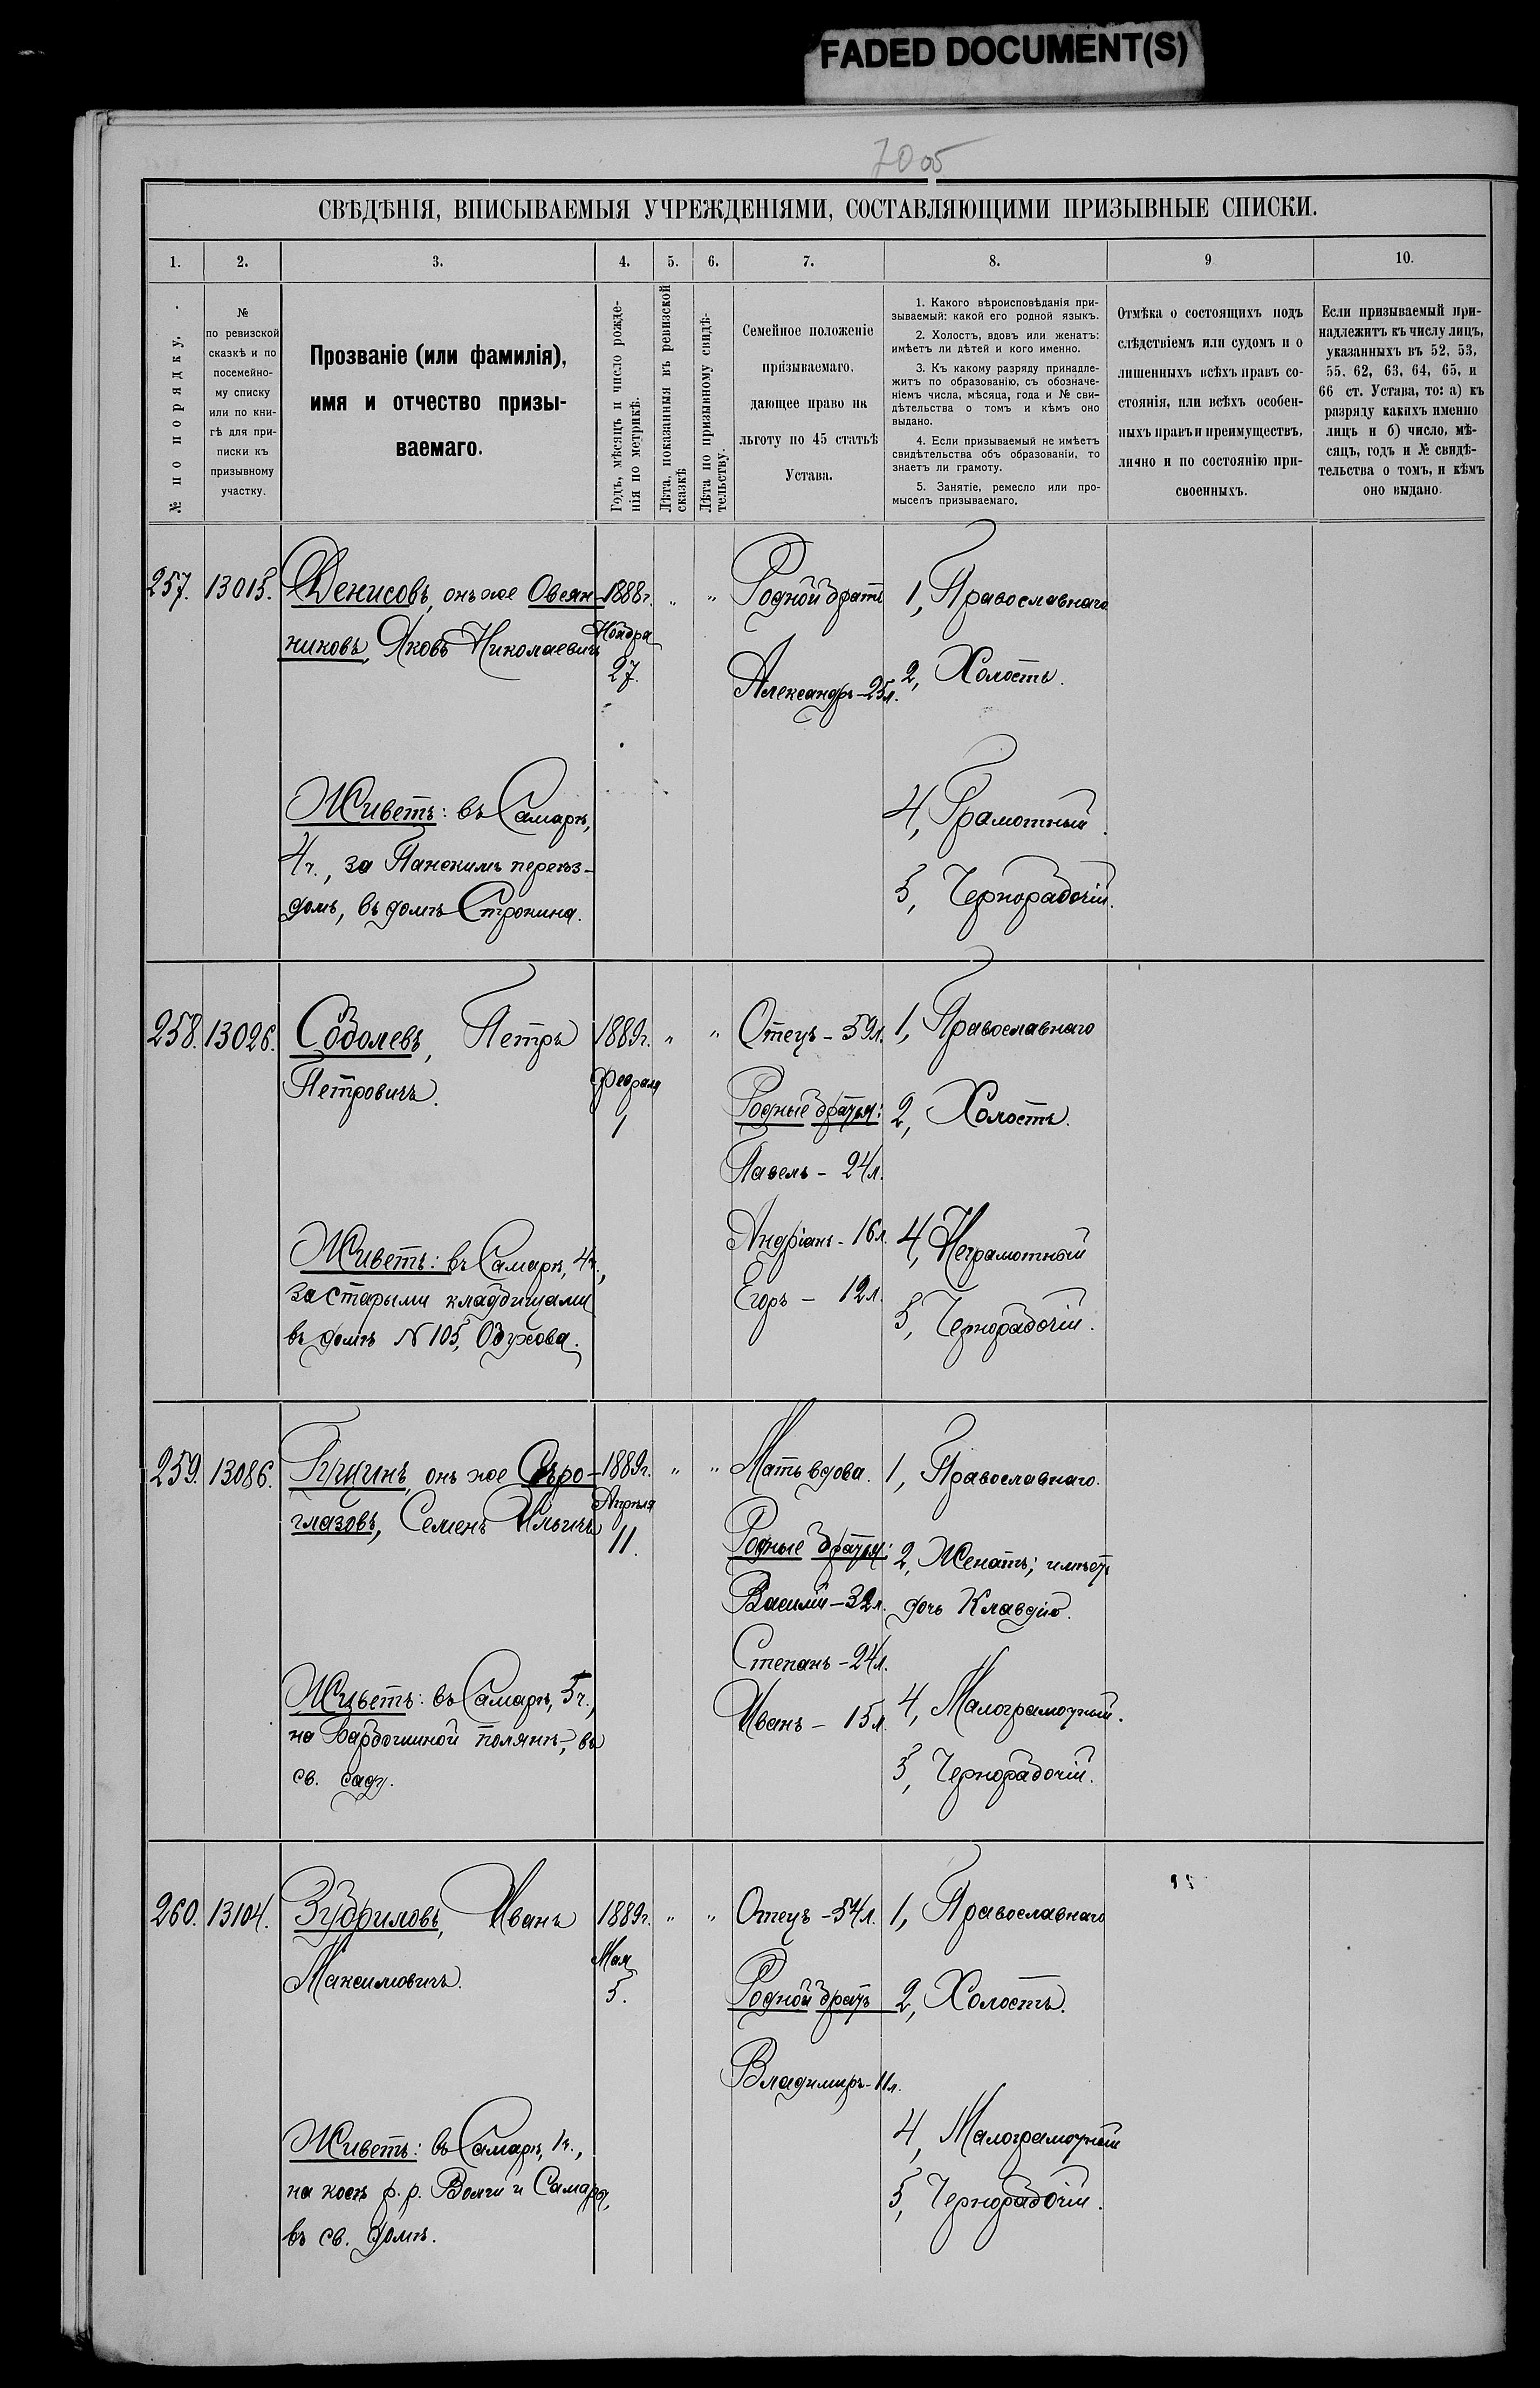 FADED DOCUMENT(S)
7005
СВѢДѢНІЯ, ВПИСЫВАЕМЫЯ УЧРЕЖДЕНІЯМИ, СОСТАВЛЯЮЩИМИ ПРИЗЫВНЫЕ СПИСКИ.
1.
2.
3.
4.
5.
6.
7.
8.
9
10.
№ по порядку.
№
по ревизской
сказкѣ и по
посемейно-
му списку
или по кни-
гѣ для при-
писки къ
призывному
участку.
Прозваніе (или фамилія),
имя и отчество призы-
ваемаго.
Годъ, мѣсяцъ и число рожде-
нія по метрикѣ.
Лѣта, показанныя въ ревизской
сказкѣ
Лѣта по призывному свидѣ-
тельству.
Семейное положеніе
призываемаго,
дающее право на
льготу по 45 статьѣ
Устава.
1. Какого вѣроисповѣданія при-
зываемый: какой его родной языкъ.
2. Холостъ, вдовъ или женатъ:
имѣетъ ли дѣтей и кого именно.
3. Къ какому разряду принадле-
житъ по образованію, съ обозначе-
ніемъ числа, мѣсяца, года и № сви-
дѣтельства о томъ и кѣмъ оно
выдано.
4. Если призываемый не имѣетъ
свидѣтельства объ образованіи, то
знаетъ ли грамоту.
5. Занятіе, ремесло или про-
мыселъ призываемаго.
Отмѣка о состоящихъ подъ
слѣдствіемъ или судомъ и о
лишенныхъ всѣхъ правъ со-
стоянія, или всѣхъ особен-
ныхъ правъ и преимуществъ,
лично и по состоянію при-
своенныхъ.
Если призываемый при-
надлежитъ къ числу лицъ,
указанныхъ въ 52, 53,
55, 62, 63, 64, 65, и
66 ст. Устава, то: а) къ
разряду какихъ именно
лицъ и б) число, мѣ-
сяцъ, годъ и № свидѣ-
тельства о томъ, и кѣмъ
оно выдано.
257.
13015.
Денисовъ, онъ же Овсян-
никовъ, Яковъ Николаевичъ
Живетъ: въ Самарѣ,
4ч., за Панскимъ переѣз-
домъ, въ домѣ Строкина.
1888г.
Ноября
27.
"
"
Родной братъ
Александръ-25л.
1, Православнаго
2, Холостъ.
4, Грамотный.
5, Чернорабочій.
258.
13026.
Соболевъ, Петръ
Петровичъ.
Живетъ: въ Самарѣ, 4ч.,
за старыми кладбищами
въ домѣ № 105, Обухова.
1889г.
Февраля
1
"
"
Отецъ - 59л.
Родные братья:
Павелъ - 24л.
Андріанъ - 16л.
Егоръ - 12л.
1, Православнаго
2, Холостъ.
4, Неграмотный
5, Чернорабочій.
259.
13086.
онъ же Сѣро-
глазовъ, Семенъ Ильичъ
Живетъ: въ Самарѣ, 5ч.,
на полянѣ, въ
св. саду.
1889г.
Апрѣля
11.
"
"
Мать вдова.
Родные братья:
Василій-32л.
Степанъ-24л.
Иванъ - 15л.
1, Православнаго.
2, Женатъ; имѣетъ
дочь Клавдію.
4, Малограмотный.
5, Чернорабочій.
260.
13104.
Зубриловъ, Иванъ
Максимовичъ.
Живетъ: въ Самарѣ, 1ч.,
на косѣ р.р. Волги и Самары,
въ св. домѣ.
1889г.
Мая
5.
"
"
Отецъ -54л.
Родной братъ
Владимиръ-11л.
1, Православнаго
2, Холостъ.
4, Малограмотный
5, Чернорабочій.